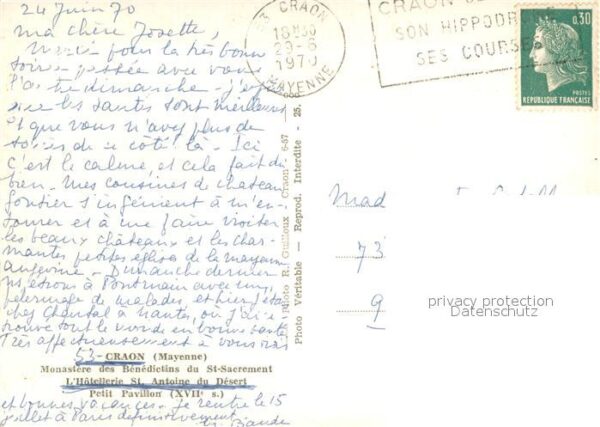 24 Juin 70
Ma chère Josette,
Merci pour la très bonne
soirée passée avec vous
l'autre dimanche - j'espère
que les santés sont meilleures
et que vous n'avez plus de
soucis de ce côté là - Ici
c'est le calme, et cela fait du
bien - Mes cousines de chateau
gontier s'ingénient à m'en-
tourer et à me faire visiter
les beaux châteaux et les char-
mantes petites églises de la mayenne
angevine - Dimanche dernier
ns, étions à Pontmain avec un
pelerinage de malades, et hier, 
chez Chantal à Nantes, où j'ai
trouvé tout le monde en bonne santé
Très affectueusement à vous
53- CRAON (Mayenne)
Monastère des Bénédictins du St-Sacrement
L'Hôtellerie St. Antoine du Désert
Petit Pavillon (XVIIe s.)
et bonnes vacances. Je rentre le 15
juillet à Paris définitivement
Photo R. Guilloux - Craon 6-67
Photo Véritable — Reprod. Interdite - 25.
53 CRAON
18H30
29-6
1970
MAYENNE
CRAON
SON HIPPODR
SES COURSE
0,30
POSTES
REPUBLIQUE FRANÇAISE
Mad
73
9
privacy protection
Datenschutz